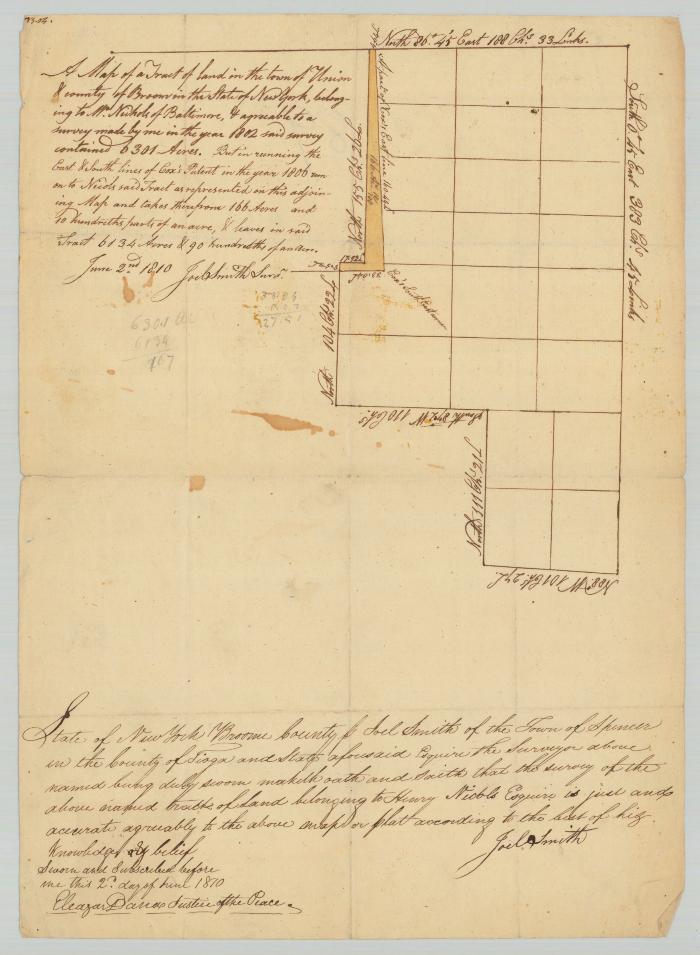 North 86° 45 East 188 Chs. 33 Links.
A Map of a Tract of land in the town of Union
& county of Broom in the State of New York, belong-
ing to Mr. Nichols of Baltimore, & agreeable to a
survey made by me in the year 1802 said survey
contained 6301 Acres. But in running the
East & South lines of Cox's Patent in the year 1806 run
on to Nicols said Tract as represented on this adjoin-
ing Map and takes therefrom 166 Acres and
10 hundredths parts of an acre, & leaves in said
Tract 6134 Acres & 90 hundredths of an acre.
June 2nd 1810 Joel Smith Survr.
South 0° 45 East 303 Chs. 45 Links
North
North 104 Ch. 22 L
6301
6134
167
South 84° W 110 Chs
North 111 Ch. 21 L
101 Ch. 27 L
State of New York Broome County I Joel Smith of the Town of Spencer
in the County of Tioga and State aforesaid Esquire the Surveyor above
named being duly sworn maketh oath and Saith that the survey of the
above named tracts of Land belonging to Henry Nicols Esquire is just and
accurate agreeably to the above map or plat according to the best of his
Knowledge & belief
Joel Smith
Sworn and Subscribed before
me this 2d. day of June 1810
Eleazar Dana Justice of the Peace.